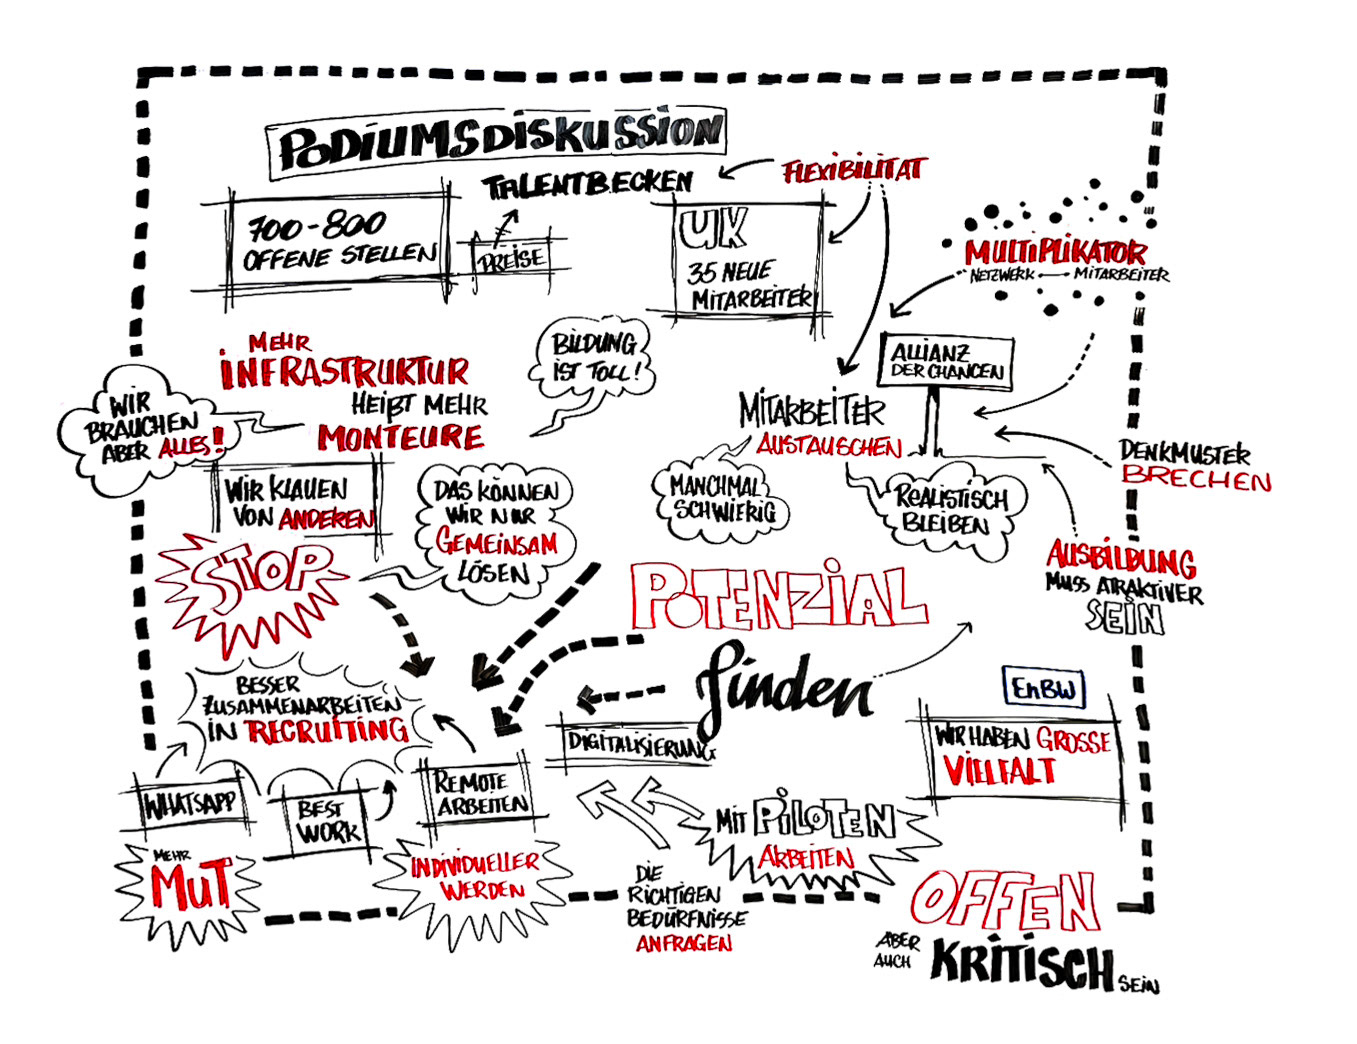 PODIUMSDISKUSSION
TALENTBECKEN
FLEXIBILITAT
700-800
OFFENE STELLEN
PREISE
UK
35 NEUE
MITARBEITER
MULTIPLIKATOR
NETZWERK
MITARBEITER
MEHR
INFRASTRUKTUR
HEIßT MEHR
MONTEURE
BILDUNG
IST TOLL!
ALLIANZ
DER CHANCEN
WIR
BRAUCHEN
ABER ALLES!
MITARBEITER
AUSTAUSCHEN
DENKMUSTER
BRECHEN
WIR KLAUEN
VON ANDEREN
DAS KÖNNEN
WIR NUR
GEMEINSAM
LÖSEN
MANCHMAL
SCHWIERIG
REALISTISCH
BLEIBEN
STOP
POTENZIAL
finden
AUSBILDUNG
MUSS ATRAKTIVER
SEIN
BESSER
ZUSAMMENARBEITEN
IN RECRUITING
EnBW
WIR HABEN GROSSE
VIELFALT
DIGITALISIERUNG
WHATSAPP
BEST
WORK
REMOTE
ARBEITEN
MIT PILOTEN
ARBEITEN
MEHR
MUT
INDIVIDUELLER
WERDEN
DIE
RICHTIGEN
BEDÜRFNISSE
ANFRAGEN
OFFEN
ABER
AUCH
KRITISCH SEIN